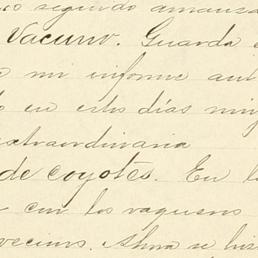 segundo amansa
Vacuno. Guarda
mi informe ant
en estos días nin
extraordinaria
de coyotes. En l
con los vaqueros
vecinos. Ahora se hiz